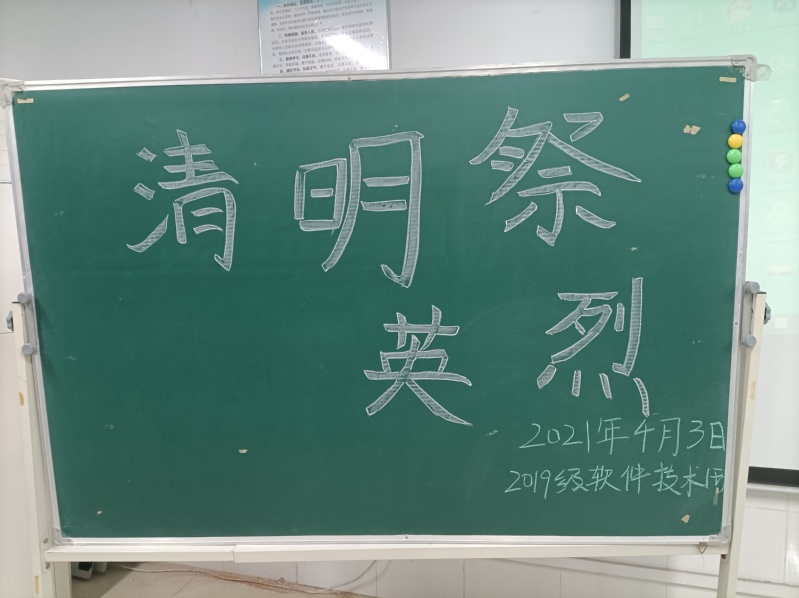 清明祭
英烈
2021年4月3日
2019级软件技术